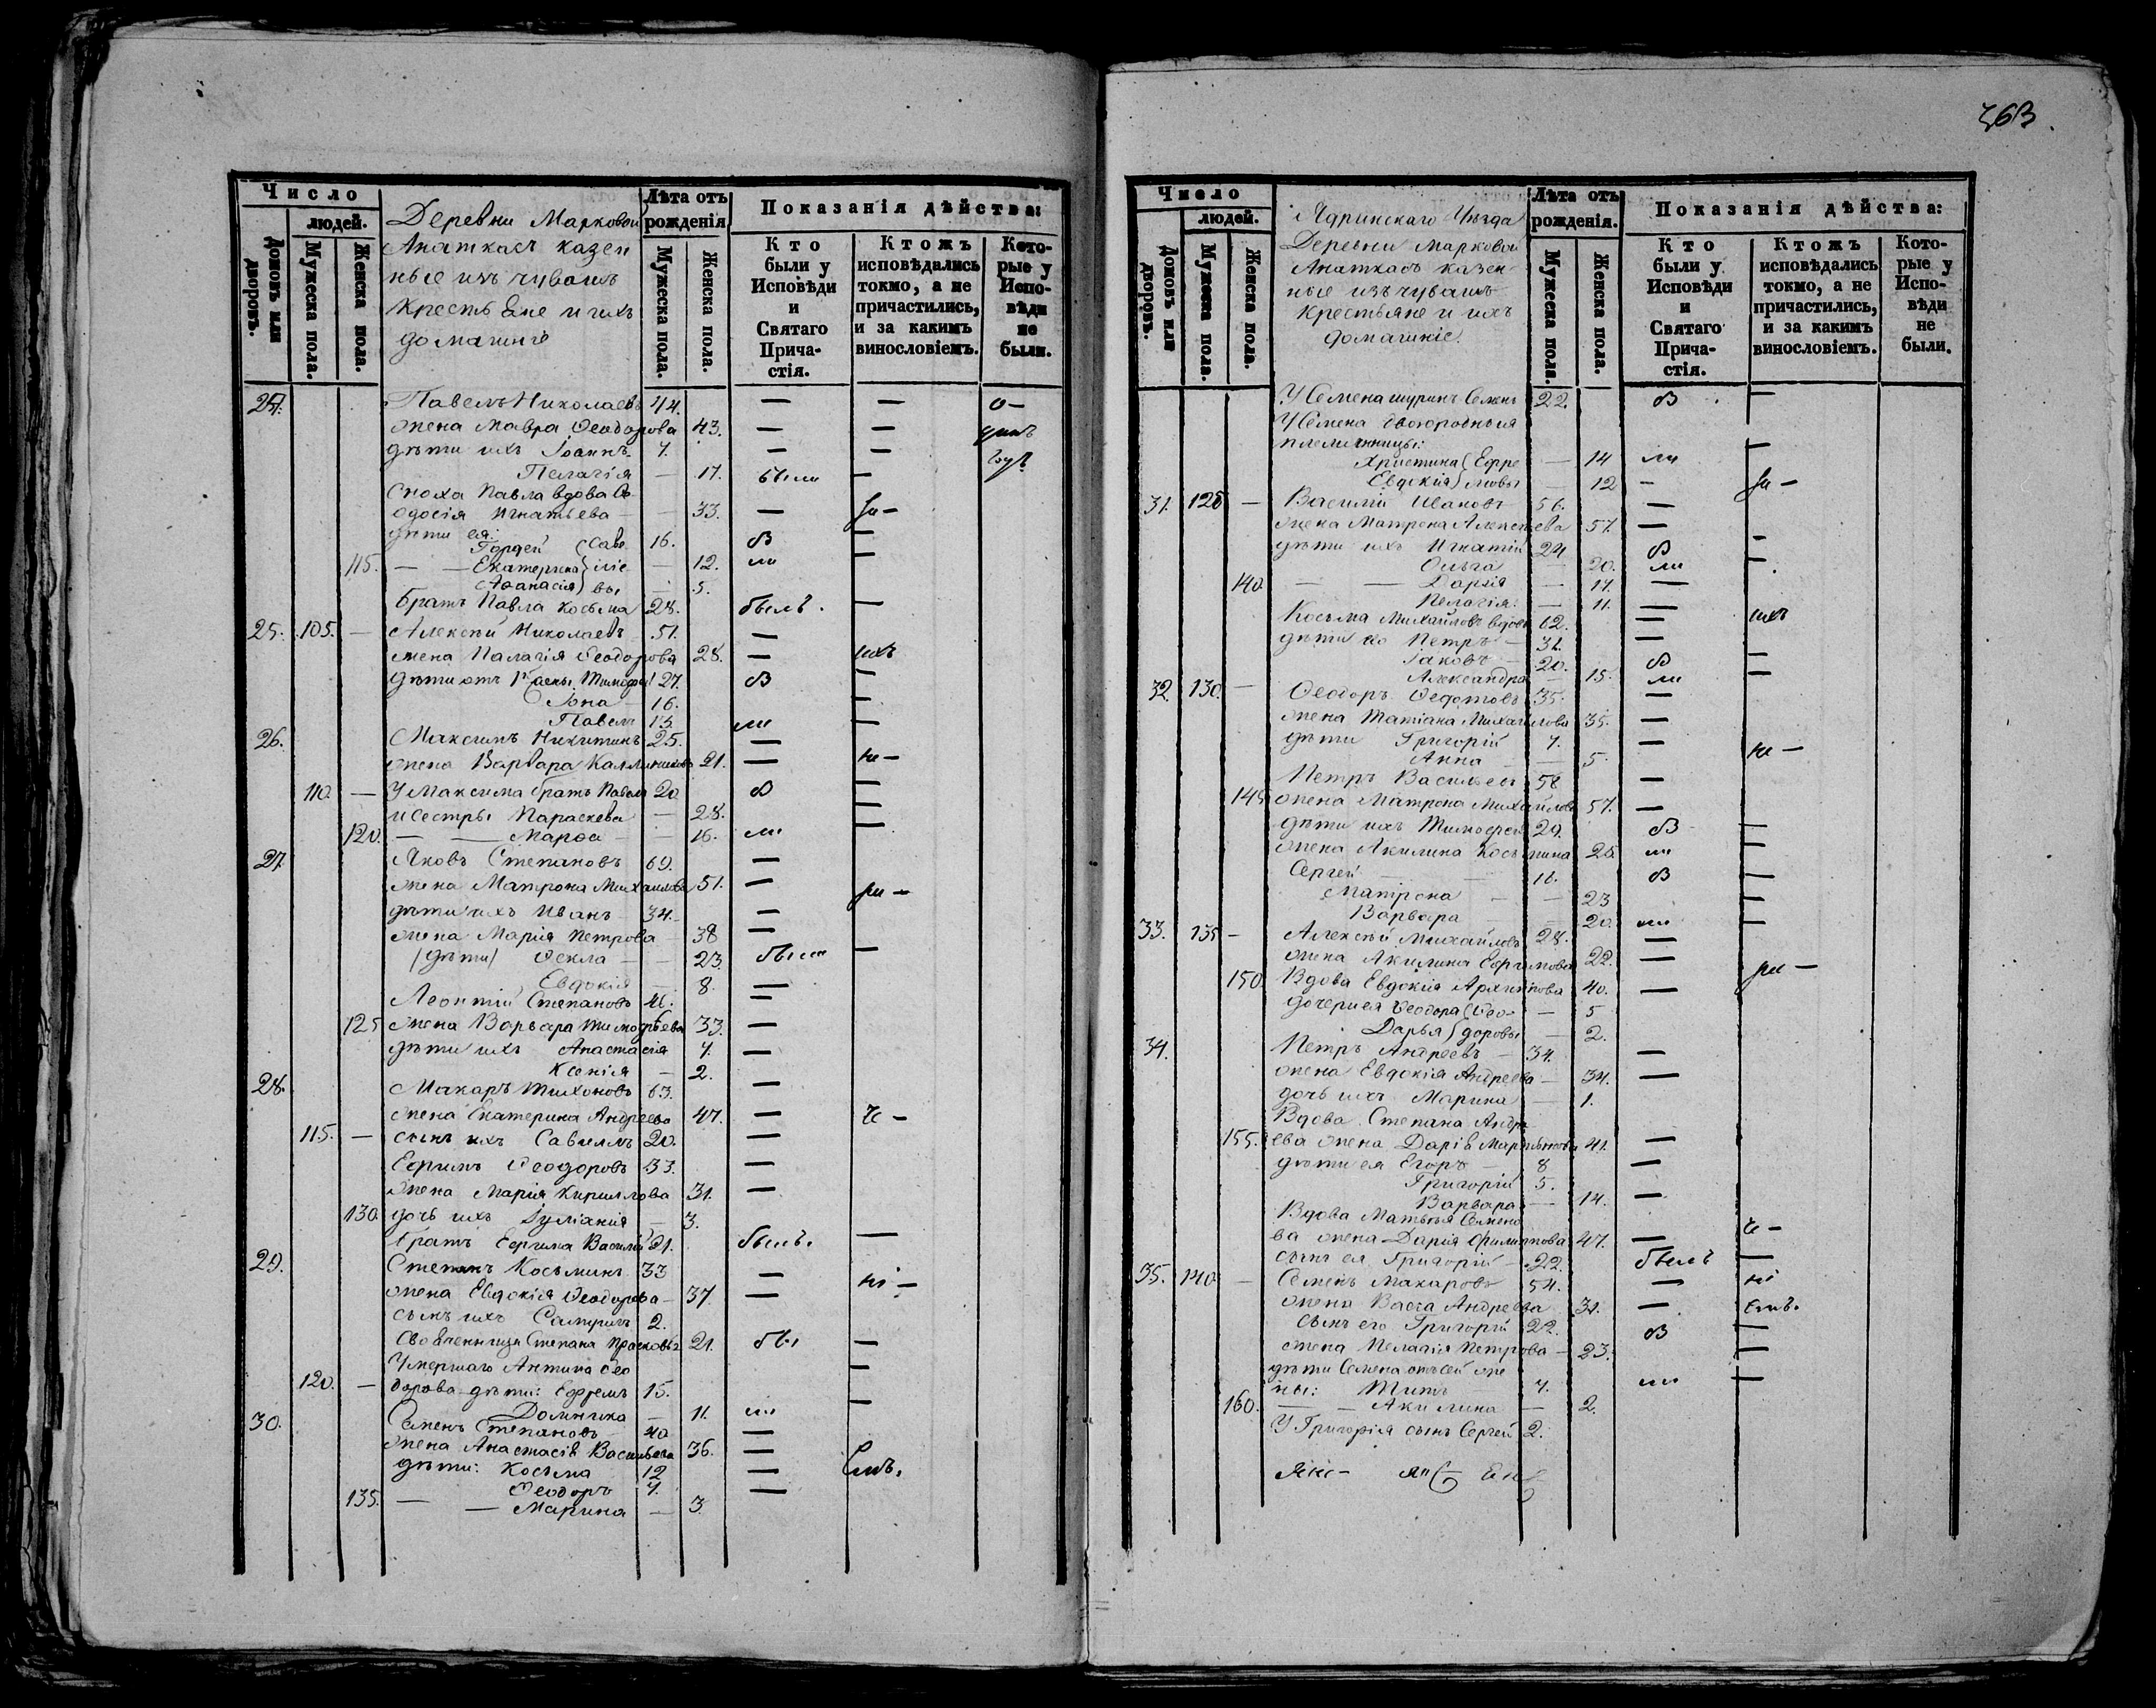 363.
Число
людей.
Домовъ или дворовъ.
Мужеска пола.
Женска пола.
Деревни Марковой
Анаткасъ казен
ные изъ чувашъ
крестьяне и ихъ
домашніе
Лѣта отъ рожденія
Мужеска пола.
Женска пола.
Показанія дѣйства:
Кто были у Исповѣди и Святаго Прича-стія.
Ктожъ исповѣдались токмо, а не причастились, и за какимъ винословіемъ.
Кото-рые у Испо-вѣди не были.
24. Павелъ Николаевъ 44. — —
жена Мавра Ѳеодорова 43. — —
дѣти ихъ Іоаннъ 7. — —
Пелагія — 17. были —
Сноха Павла вдова Ѳе
одосія Игнатьева — 33. —
дѣти ея:
Гордей (Саве 16. в —
115. — — Екатерина } ліе — 12. ли —
Аѳанасія) вы — 5.
Братъ Павла Косьма 28. былъ. —
25. 105. — Алексѣй Николаевъ 51. —
жена Палагія Ѳеодорова 28. — ихъ
дѣти отъ 1й жены Тимоѳей 27. в —
Іона 16. —
Павелъ 13. ли —
26. Максимъ Никитинъ 25. —
жена Варвара Каллиникова 21. — не —
110. — У Максима братъ Павелъ 20 в —
и сестры Параскева — 28. —
120. — — Марѳа — 16. ли —
27. Яковъ Степановъ 69. —
жена Матрона Михаилова 51. —
дѣти ихъ Иванъ 34. —
жена Марія Петрова — 38 —
(дѣти) Ѳекла — — 23. были —
Евдокія — 8. —
Леонтій Степановъ 41. —
125 жена Варвара Тимоѳѣева 33. —
дѣти ихъ Анастасія 7. —
Ксенія — 2.
28. Макаръ Тихоновъ 63. —
жена Екатерина Андреева 47. —
115. — сынъ ихъ Савелій 20. —
Ефимъ Ѳеодоровъ 33. —
жена Марія Кириллова 31. —
130. дочь ихъ Іуліанія — 3.
братъ Ефима Василій 21. былъ. —
29. Степанъ Косьминъ 33 —
жена Евдокія Ѳеодорова — 37. —
сынъ ихъ 2.
Своячениица Степана Прасковья 21. бы —
Умершаго Антипа Ѳео —
120. — дорова дѣти: Ефремъ 15. —
Домника — 11. ли —
30. Семенъ Степановъ 40 —
жена Анастасія Васильева 36. —
дѣти: Косьма 12 —
Ѳеодоръ 7. —
135. — — Марина — 3.
Число
людей.
Домовъ или дворовъ.
Мужеска пола.
Женска пола.
Ядринскаго Уѣзда
Деревни Марковой
Анаткасъ казен-
ные изъ чувашъ
крестьяне и ихъ
домашніе.
Лѣта отъ рожденія.
Мужеска пола.
Женска пола.
Показанія дѣйства:
Кто были у Исповѣди и Святаго Прича-стія.
Ктожъ исповѣдались токмо, а не причастились, и за какимъ винословіемъ.
Кото-рые у Испо-вѣди не были.
У Семена шуринъ Семенъ 22. в —
У Семена двоюродныя
племянницы:
Христина (Ефре — 14 ли —
Евдокія) мовы — 12 —
31. 125 — Василій Ивановъ 56. —
жена Матрона Алексѣева 57. —
дѣти ихъ Игнатій 24 в —
Ольга — 20. ли —
140. — — Дарія — 17. —
Пелагія — 11. —
Косьма Михайловъ вдовъ 62. — ихъ
дѣти его Петръ — 31. —
Іаковъ — 20. в —
Александра — 15. ли —
32. 130. — Ѳеодоръ Ѳедотовъ 35. —
жена Татіана Михаилова 35. —
дѣти Григорій 7. —
Анна — 5. не —
Петръ Васильевъ 58 —
145 жена Матрона Михайлова 57. —
дѣти ихъ Тимоѳей 29. в —
жена Акилина Косьмина 25 ли —
Сергей — 16. в —
Матрона — — 23 —
Варвара — 20. ли —
33. 135 — Алексѣй Михайловъ 28. —
жена Акилина Ефимова 22. —
150. Вдова Евдокія Архипова 40. —
дочери ея Ѳеодора (Ѳео- — 5
Дарья) доровы — 2.
34. Петръ Андреевъ — 34. —
жена Евдокія Андреева — 34. —
дочь ихъ Марина — 1.
Вдова Степана Андре
155. ева жена Дарія 41. —
дѣти ея Егоръ — 8 —
Григорій 5.
Варвара — 14. —
Вдова Матвѣя Семено
ва жена Дарія Филиппова 47. —
сынъ ея Григорій — 22. былъ —
35. 140. — Семенъ Макаровъ 54. —
жена Васса Андреева 31. —
сынъ его Григорій 22. в
жена Пелагія Петрова — 23. —
дѣти Семена отъ сей же
ны: Титъ — 7. ли —
160. — — Акилина — 2.
У Григорія сынъ Сергей 2.